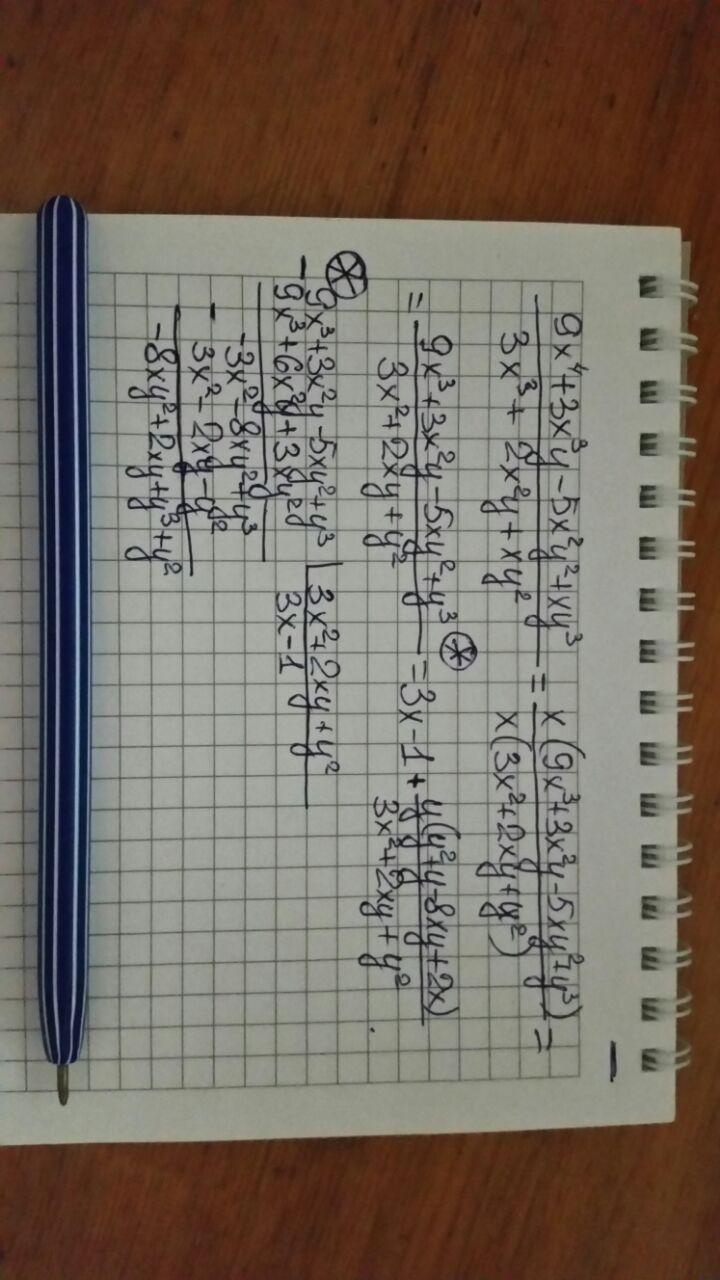 9x⁴+3x³y-5x²y²+xy³ / 3x³+2x²y+xy² = x(9x³+3x²y-5xy²+y³) / x(3x²+2xy+y²) =
= 9x³+3x²y-5xy²+y³ / 3x²+2xy+y² ⊛ = 3x-1+ y(y²+y-8xy+2x) / 3x²+2xy+y² .
⊛ 9x³+3x²y-5xy²+y³ | 3x²+2xy+y²
- 9x³+6x²y+3xy² | 3x-1
-3x²y-8xy²+y³
- 3x²-2xy-y²
-8xy²+2xy+y³+y²